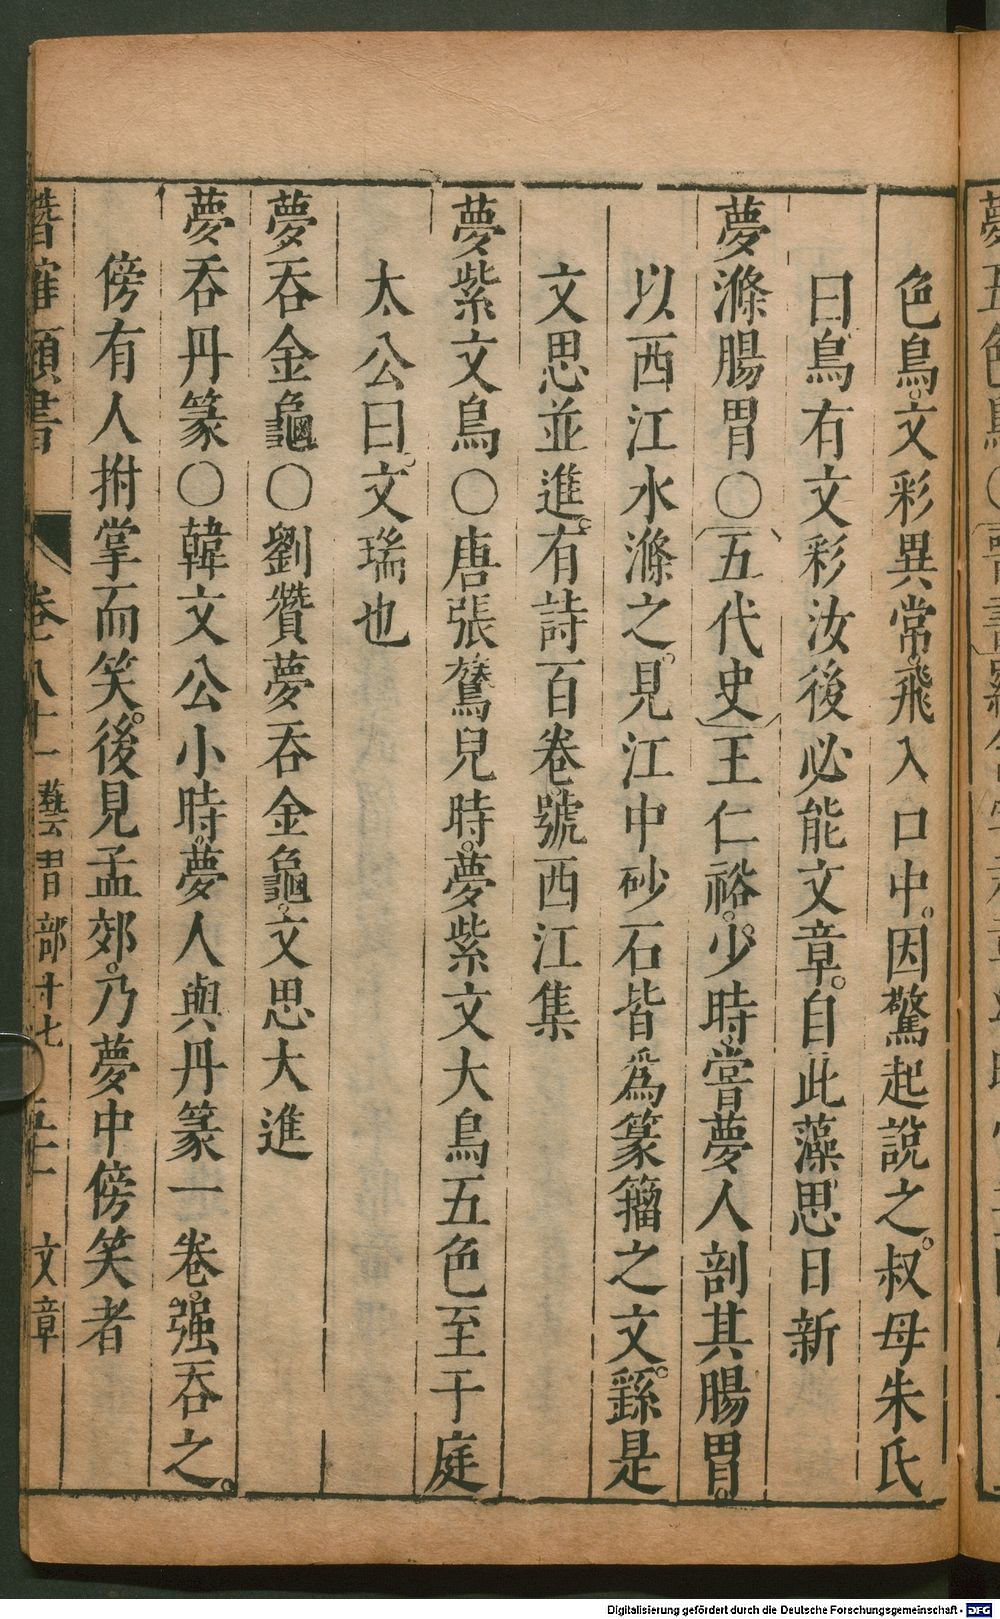 色鳥。文彩異常。飛入口中。因驚起說之。叔母朱氏
曰鳥有文彩汝後必能文章。自此藻思日新
夢滌腸胃〇〔五代史〕王仁裕。少時。嘗夢人剖其腸胃。
以西江水滌之。見江中砂石皆爲篆籀之文。繇是
文思並進。有詩百卷。號西江集
夢紫文鳥〇唐張鷟兒時。夢紫文大鳥五色至于庭
太公曰。文瑞也
夢吞金龜〇劉贊夢吞金龜。文思大進
夢吞丹篆〇韓文公小時。夢人與丹篆一卷。强吞之。
傍有人拊掌而笑。後見孟郊。乃夢中傍笑者
潛確類書 卷八十一 藝習部十七 文章
Digitalisierung gefördert durch die Deutsche Forschungsgemeinschaft - DFG